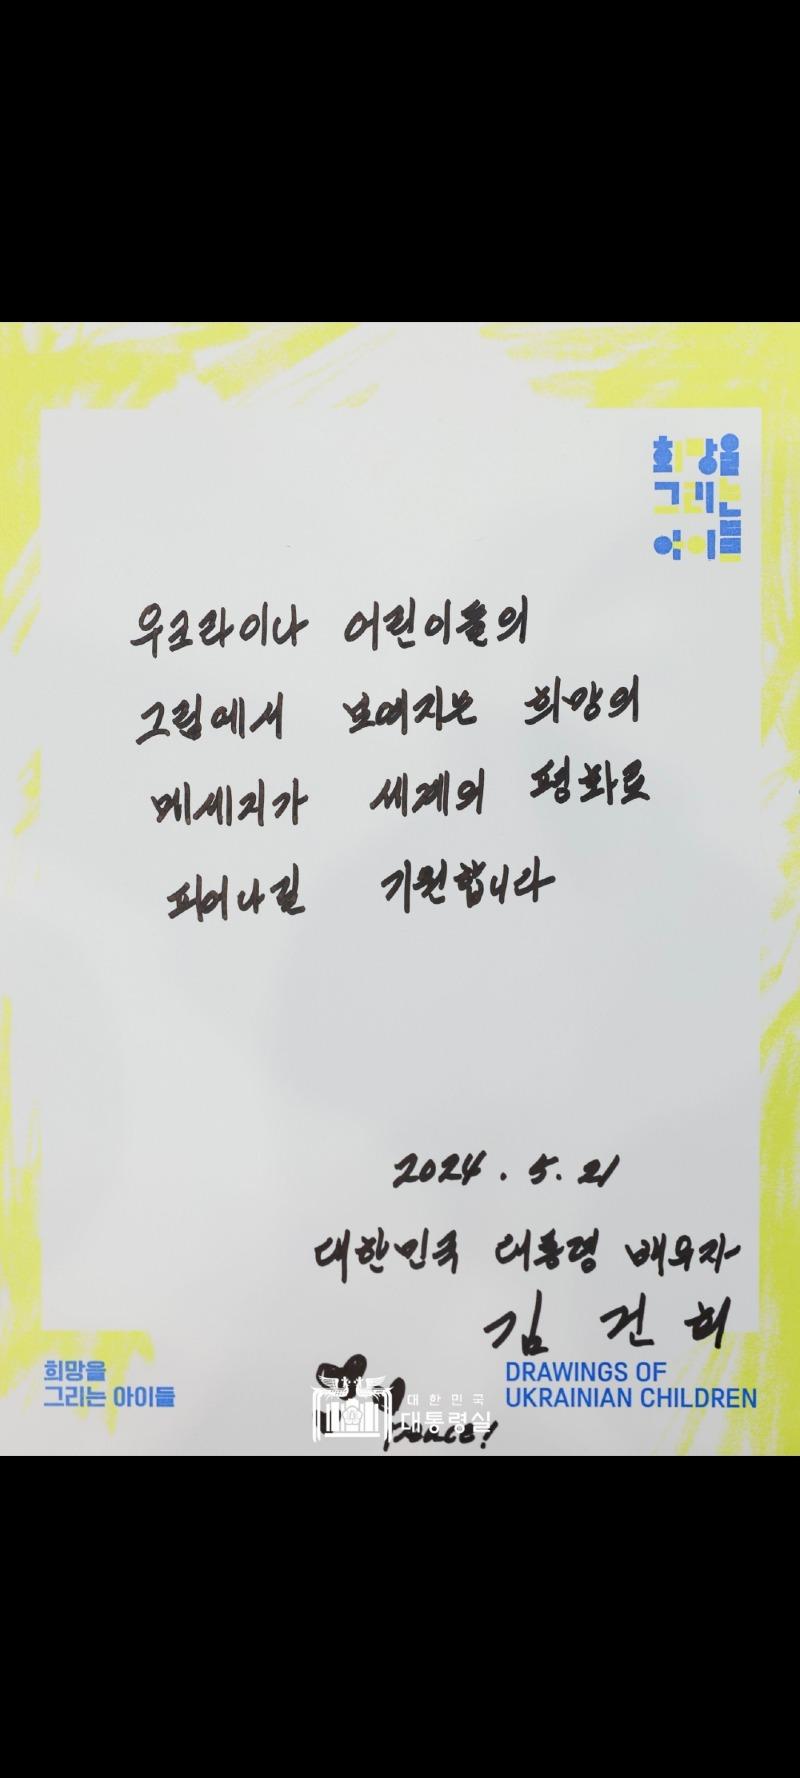 희망을
그리는
아이들
우크라이나 어린이들의
그림에서 보여지는 희망의
메세지가 세계의 평화로
피어나길 기원합니다
2024. 5. 21
대한민국 대통령 배우자
김 건 희
희망을
그리는 아이들
DRAWINGS OF
UKRAINIAN CHILDREN
대한민국
대통령실
Peace!